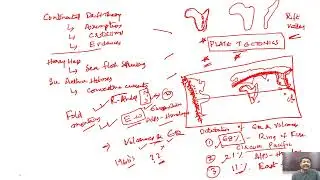 Continental Drift Theory
→ Assumption
→ Criticisms
→ Evidences
Harry Hess → Sea floor Spreading
Sir Arthur Holmes
→ Convection currents
Fold mountains
Alps - Himalaya
Volcanoes & EQ
1960s
??
Rift Valley
* PLATE TECTONICS *
Distribution of EQ & Volcanoes
① 68% - Ring of Fire
Circum Pacific
② 21% Alps - Himalaya
③ 11% East